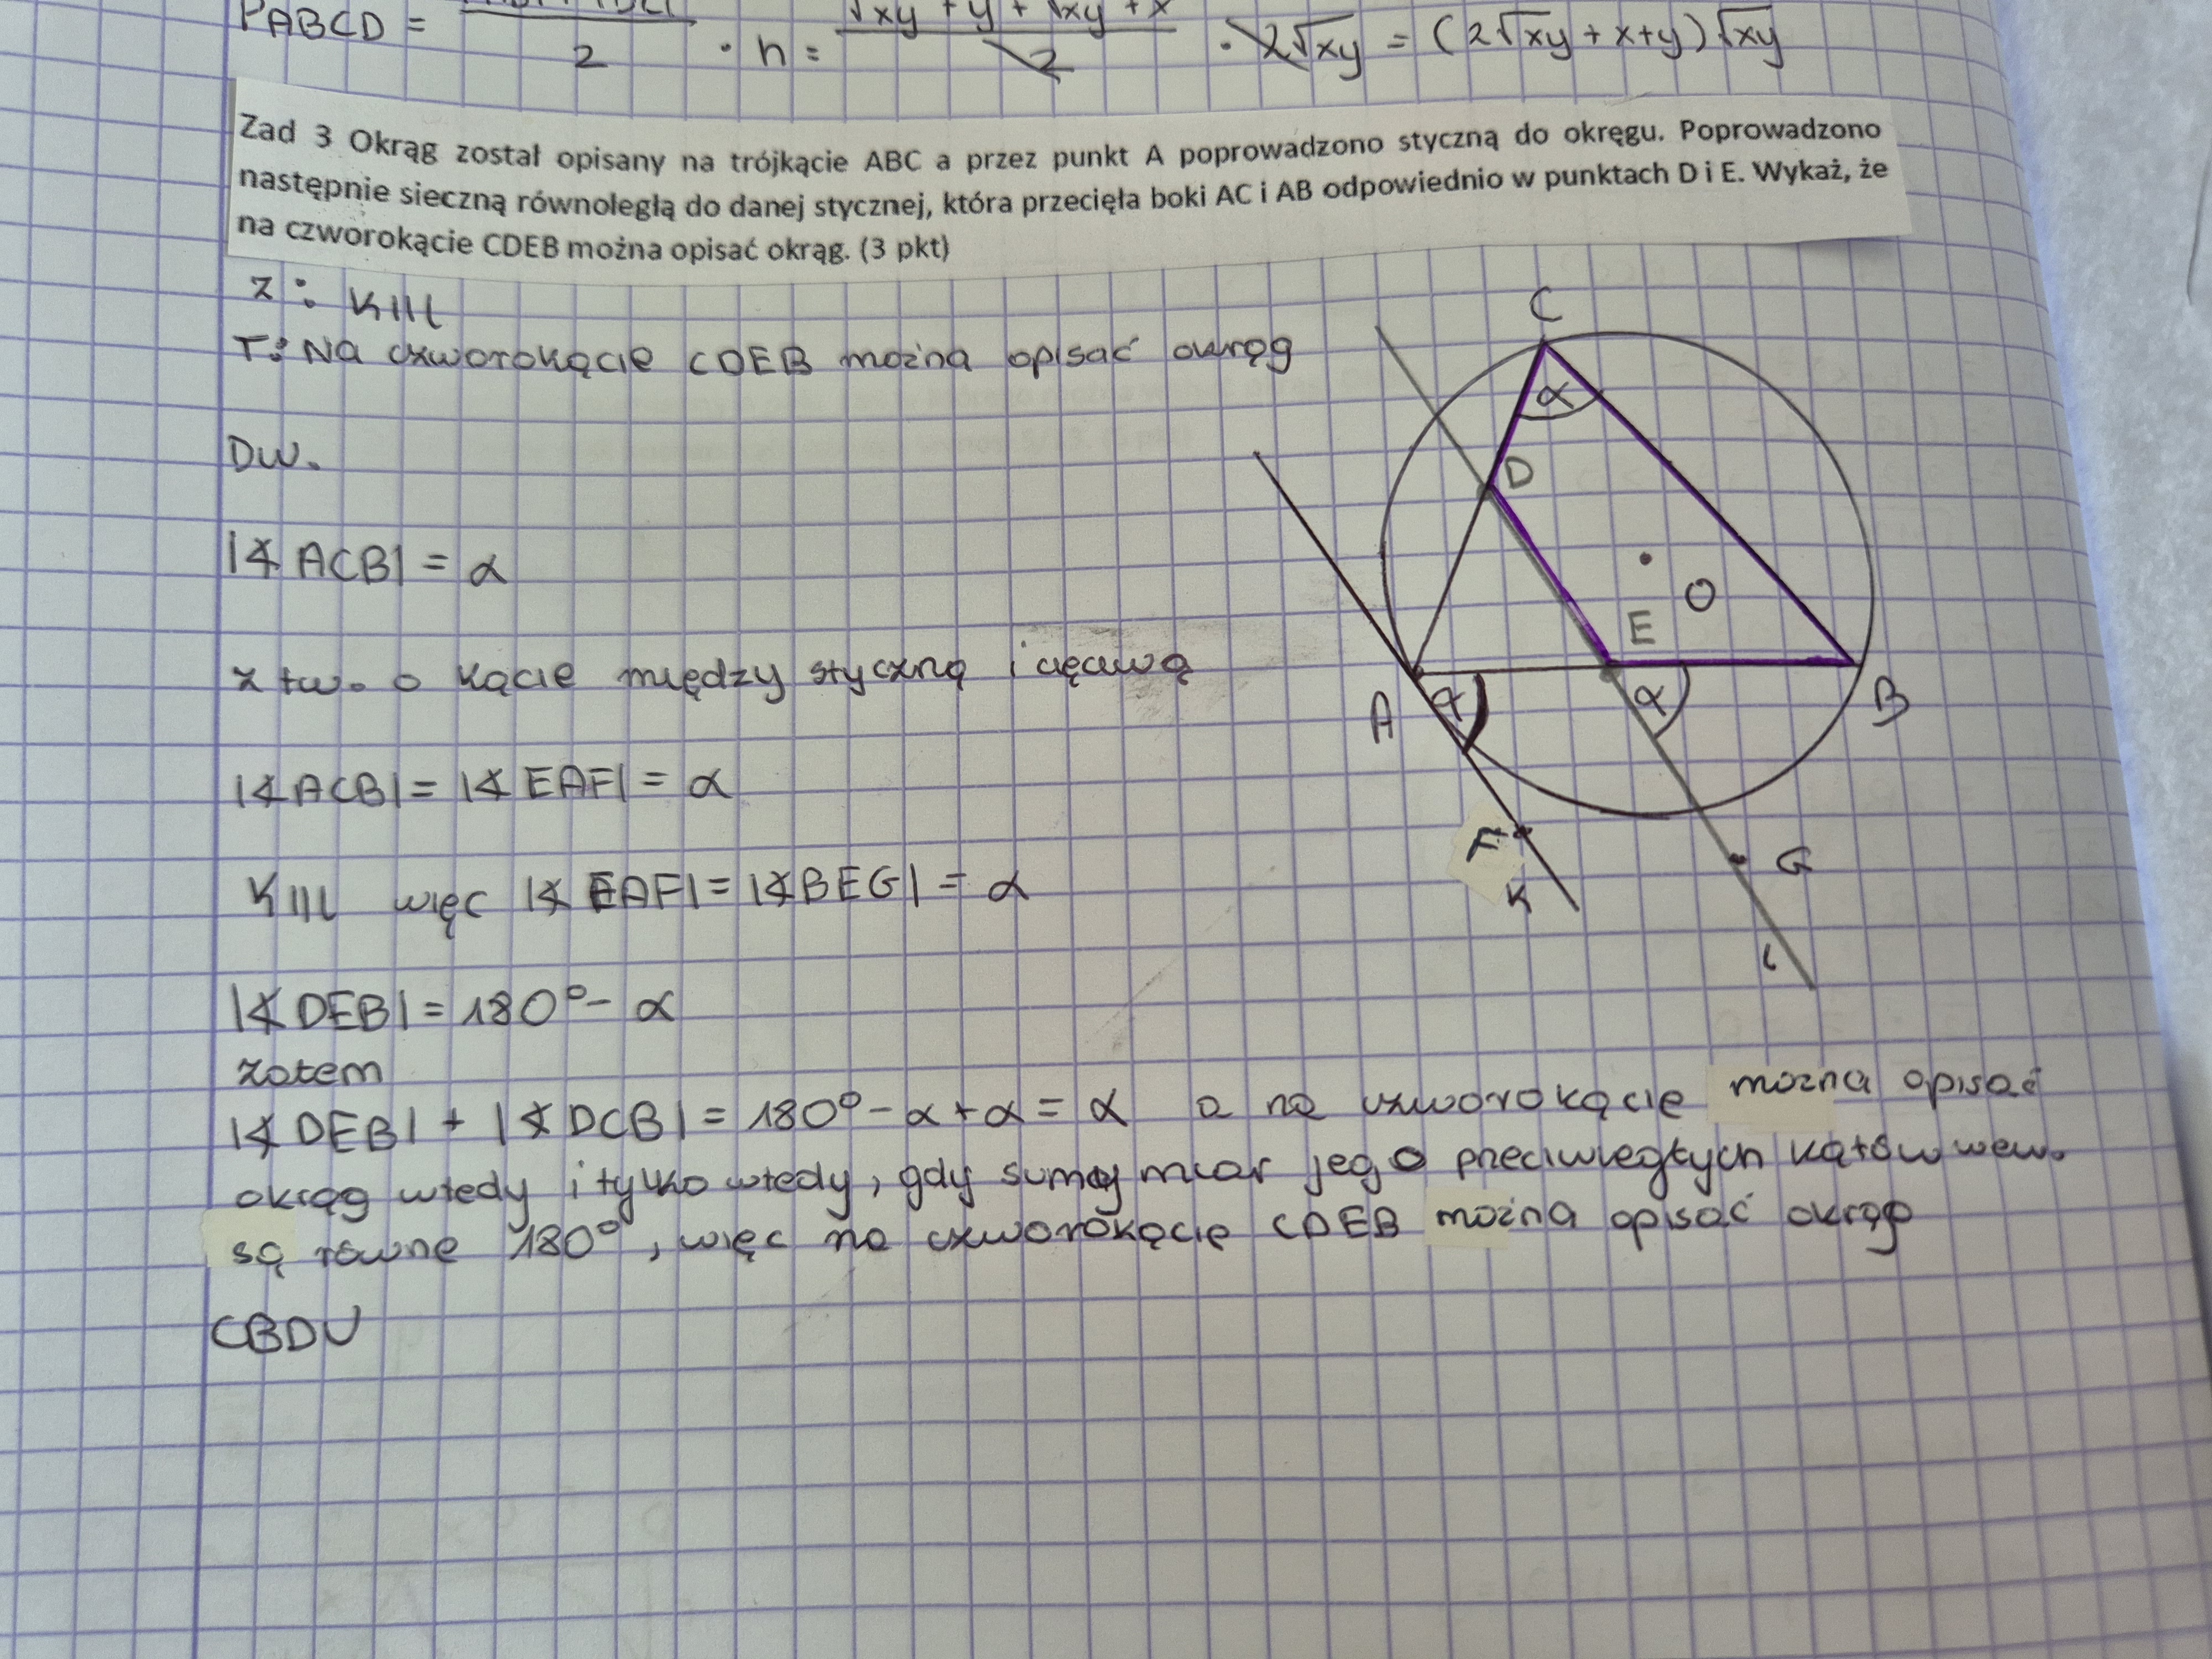 P ABCD = 2 · h = √xy + y + √xy + x / 2 · 2√xy = (2√xy + x+y)√xy
Zad 3 Okrąg został opisany na trójkącie ABC a przez punkt A poprowadzono styczną do okręgu. Poprowadzono
następnie sieczną równoległą do danej stycznej, która przecięła boki AC i AB odpowiednio w punktach D i E. Wykaż, że
na czworokącie CDEB można opisać okrąg. (3 pkt)
Z: K||l
T: Na czworokącie CDEB można opisać okrąg
Dw.
|∡ACB| = α
z tw. o kącie między styczną i cięciwą
|∡ACB| = |∡EAF| = α
K||l więc |∡EAF| = |∡BEG| = α
|∡DEB| = 180° - α
zatem
|∡DEB| + |∡DCB| = 180° - α + α = α a na czworokącie można opisać
okrąg wtedy i tylko wtedy, gdy sumy miar jego przeciwległych kątów wew.
są równe 180°, więc na czworokącie CDEB można opisać okrąg
CBDU
C
α
D
O
E
A
α
α
B
F
K
G
l